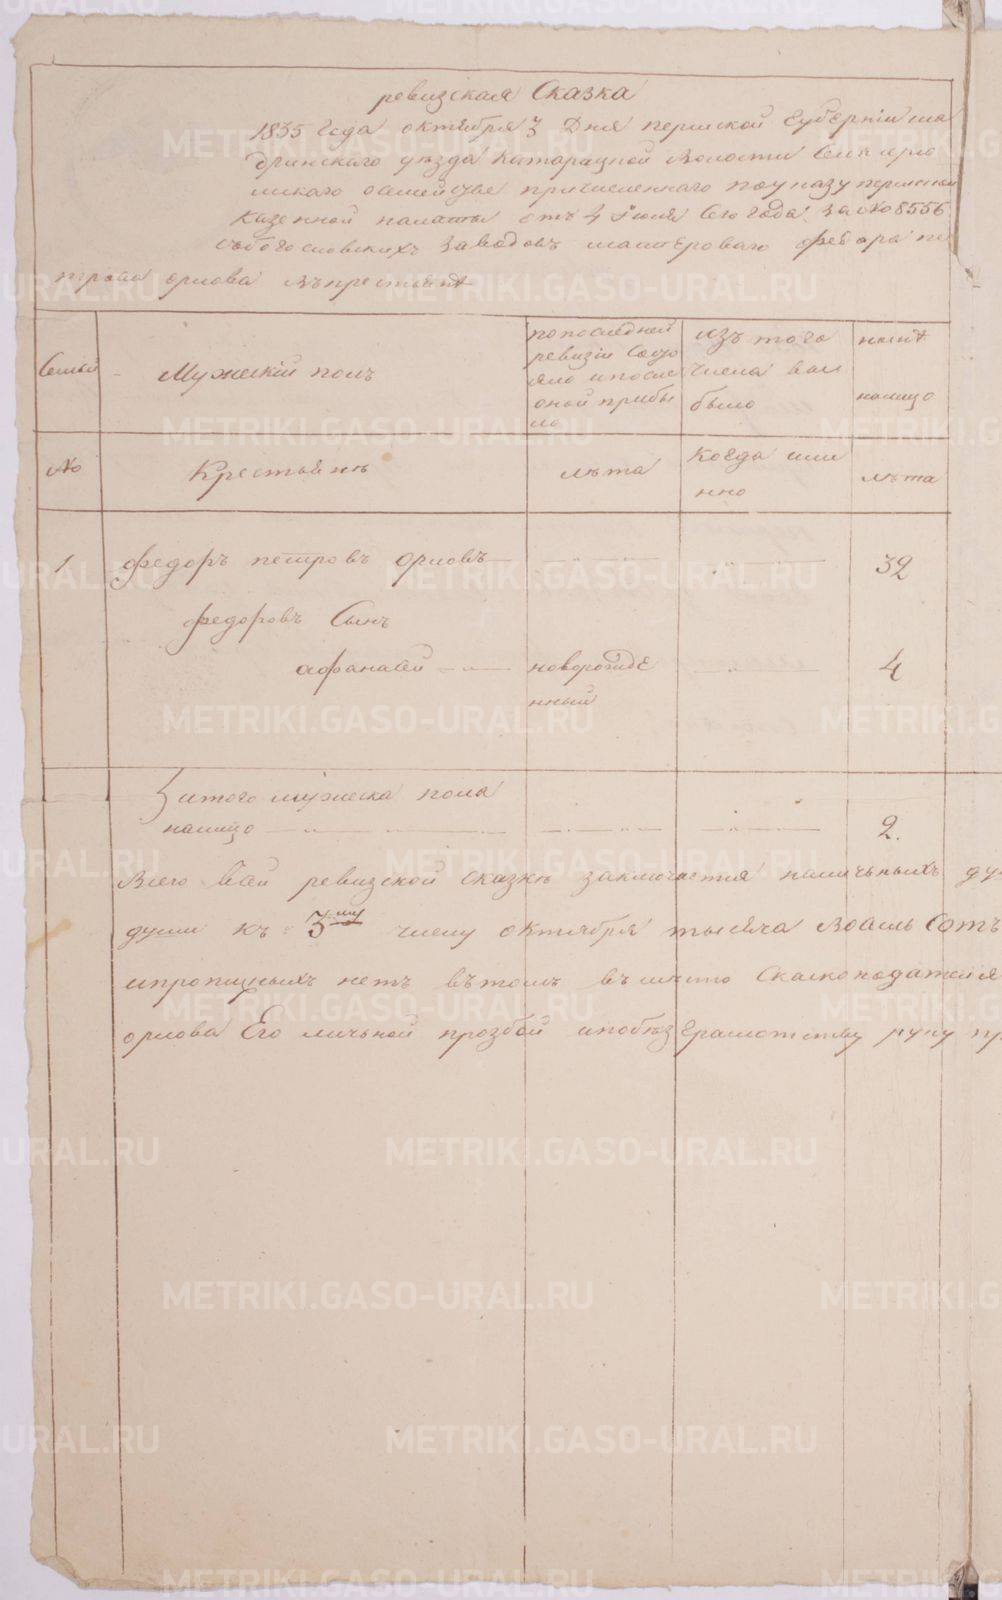 ревизская Сказка
1835 Года октября 3 Дня пермской Губернии ша
дринскаго уезда Катарацкой Волости
о семействе причисленнаго по указу пермской
Казенной палаты отъ 4 Июля Сего Года За №о 8556
съ богословскихъ Заводовъ мастероваго федора пе
трова орлова въ крестьянѣ
Семьи
Мужеский полъ
по последней
ревизии Состо
яло и после
оной прибы
ло
изъ того
числа вы
было
нынѣ
налицо
№о
Крестьянѣ
лѣта
Когда име
нно
лѣта
1. федоръ петровъ орловъ 32
федоровъ Сынъ
афанасий новорожде 4
нный
итого мужеска пола
налицо 2.
Всего в сей ревизской сказкѣ заключается наличныхъ ду
души къ 3му числу октября тысяча восемь Сотъ
и прописныхъ нетъ въ томъ въ мѣсто Сказкоподателя
орлова Его личной прозбой и по безграмотству руку пр
METRIKI.GASO-URAL.RU